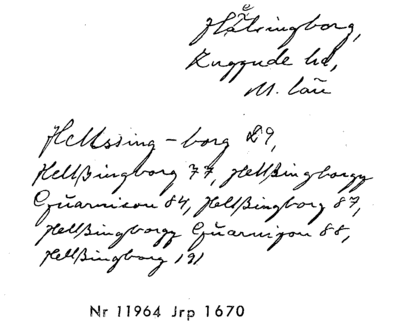 Hälsingborg,
Luggude hd,
M. län
Hellssing-borg 29,
Hellßingborg 77, Hellßingborgz
Guarnison 84, Hellßingborg 87,
Hellßingborgz Guarnizon 88,
Hellßingborg 191
Nr 11964 Jrp 1670